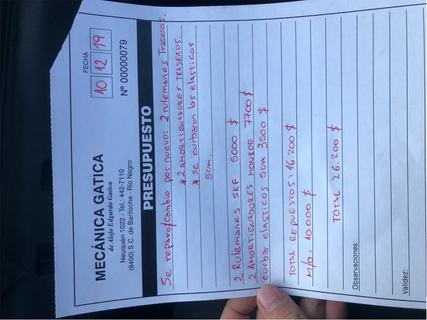 MECÁNICA GÁTICA
de Alejo Edgardo Gatica
Neuquén 1022 - Tel.: 442-7110
(8400) S.C. de Bariloche - Río Negro
FECHA
10 12 19
Nº 00000079
PRESUPUESTO
Se reparo/cambio por nuevo: 2 rulemanes Traseros.
* 2 AMORTIGUADORES TRASEROS.
* se curbaron los elasticos
5cm.
2 Rulemanes SKF 5000 $
2 AMORTIGUADORES MONROE 7700 $
curbar elasticos 5cm 3500 $
TOTAL REPUESTOS: 16.200 $
M/O = 10.000 $
TOTAL 26.200 $
Observaciones:
Validez: